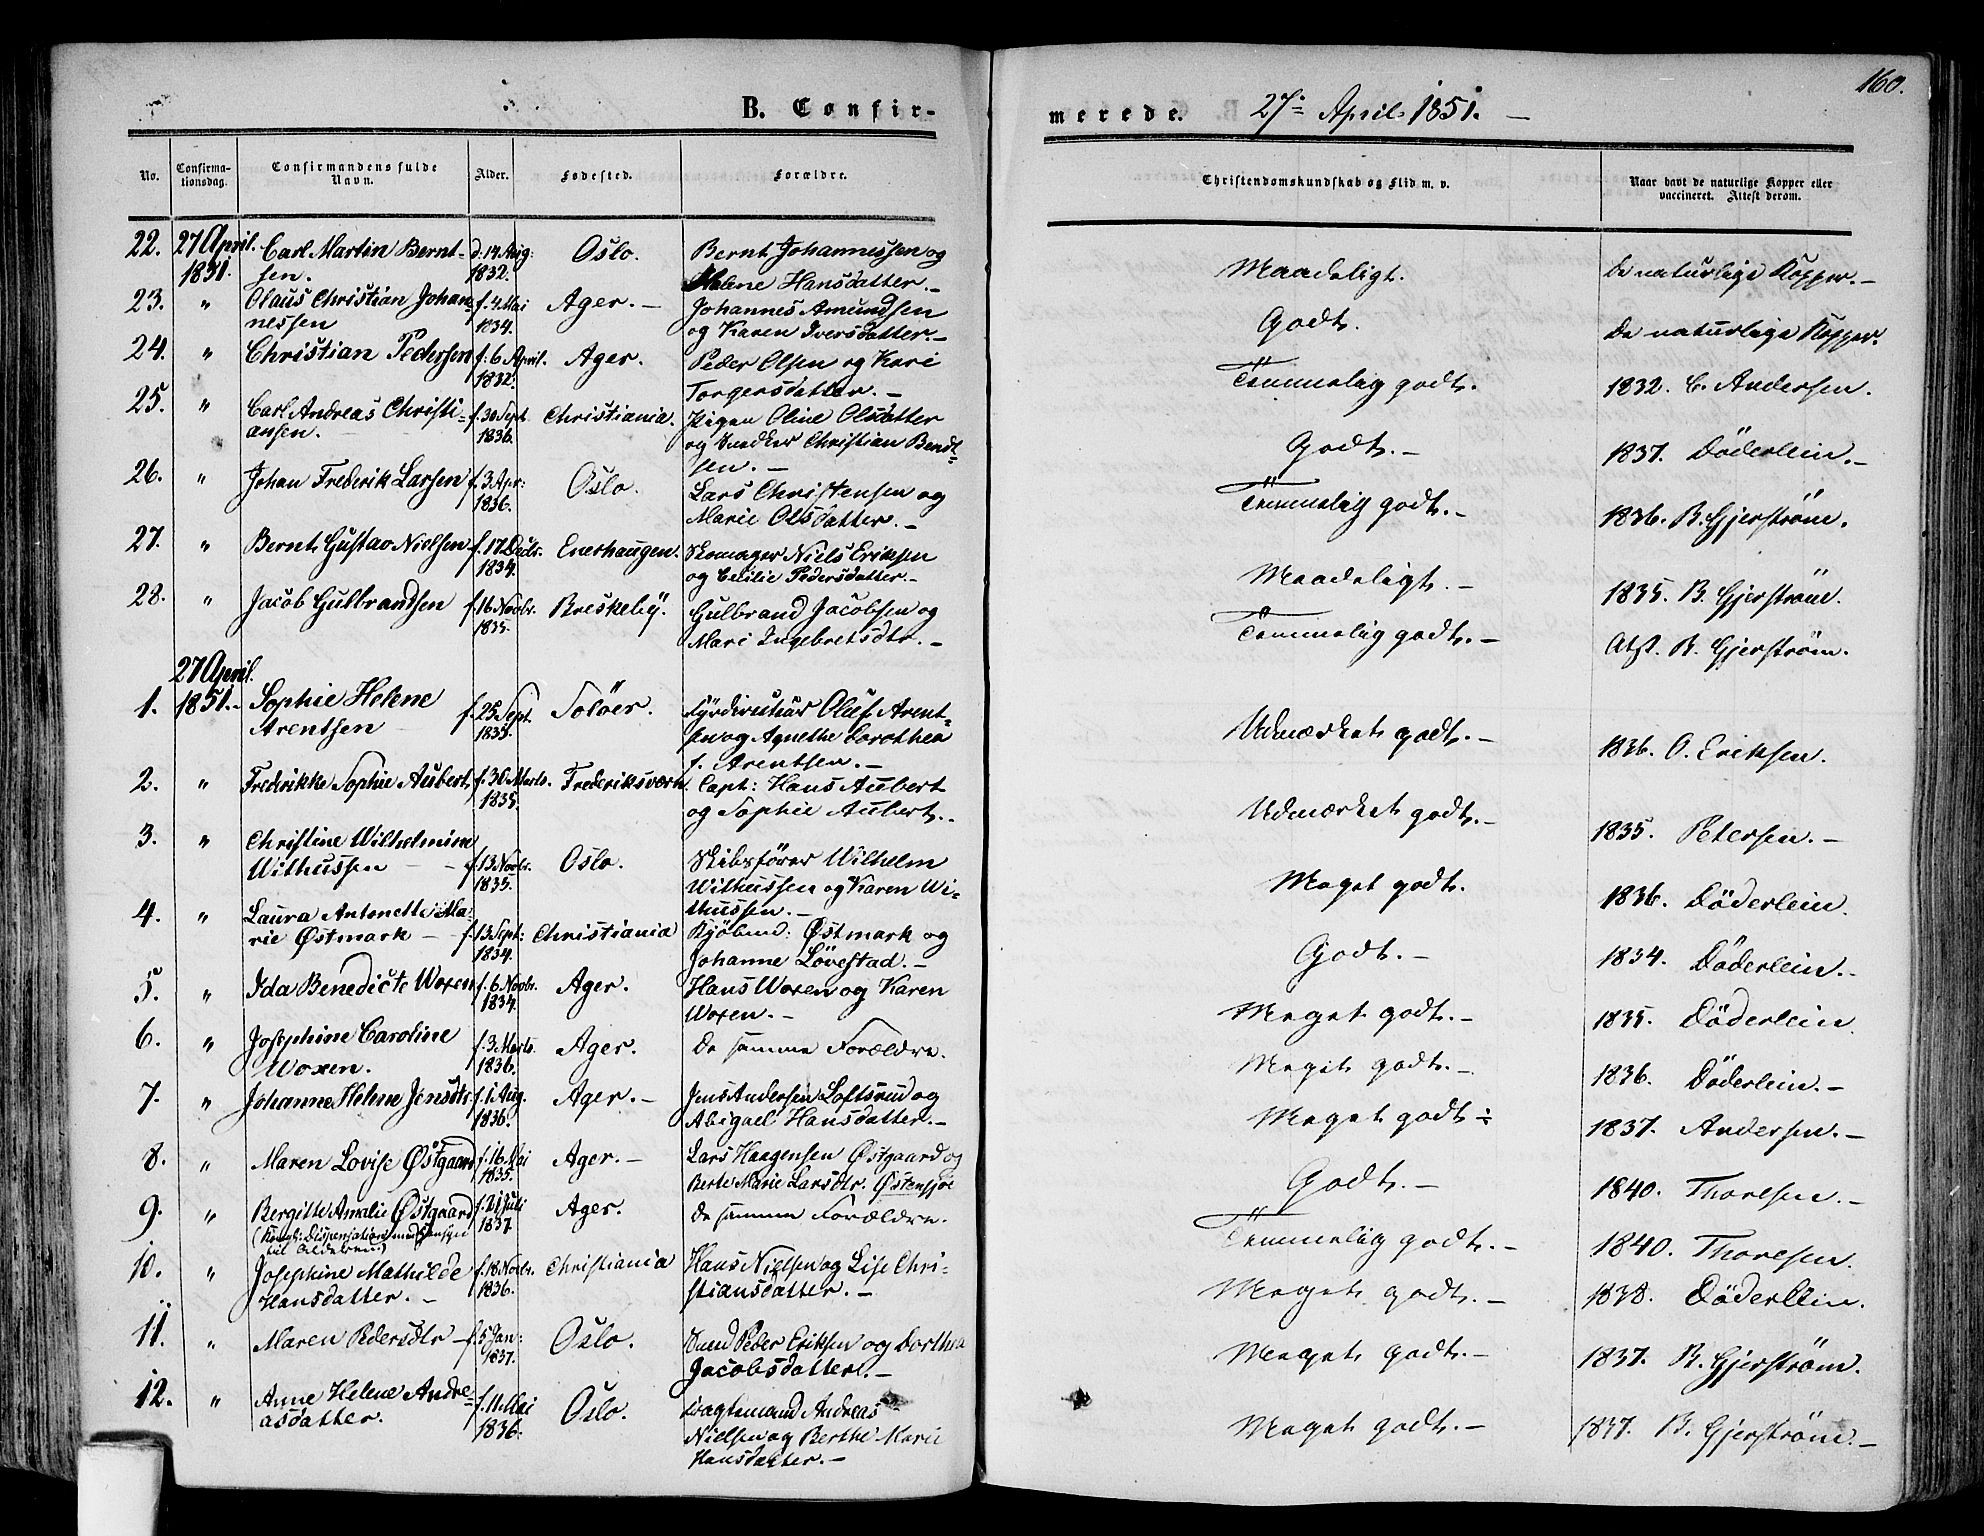 160.
B. Confir-
merede. 27. April 1851. —
No.
Confirma-
tionsdag.
Confirmandens fulde
Navn.
Alder.
Fødested.
Forældre.
Christendomskundskab og Flid m. v.
Naar havt de naturlige Kopper eller
vaccineret. Attest derom.
22. 27 April. Carl Martin Bernt- d: 14 Aug: Oslo. Bernt Johannessen og Maadeligt. De naturlige Kopper. —
1851. sen. 1832. Helene Hansdatter. —
23. " Olaus Christian Johan- f. 4 Mai Ager. — Johannes Amundsen Godt. De naturlige Kopper.
nessen 1834. og Karen Iversdatter. —
24. " Christian Pedersen f. 6 April. Ager. Peder Olsen og Kari Temmelig godt. 1832. C. Andersen.
1832. Torgersdatter. —
25. " Carl Andreas Christi- f. 30 Sept. Christiania. Pigen Oline Olsdatter Godt. — 1837. Döderlein. —
ansen. 1836. og Snedker Christian Bendt-
sen. —
26. " Johan Frederik Larsen f. 3 Apr: Oslo. Lars Christensen og Temmelig godt. — 1836. B. Gjerström.
1836. Marie Olsdatter. —
27. " Bernt Gustav Nielsen f. 17 Decbr. Enerhaugen. Skomager Niels Eriksen Maadeligt. — 1835. B. Gjerström.
1834. og Cecilie Pedersdatter. —
28. " Jacob Gulbrandsen f. 16 Novbr. Breskeby. Gulbrand Jacobsen og Temmelig godt. — Atst. B. Gjerström.
1835. Mari Ingebretsdtr. —
27 April.
1. 1851. — Sophie Helene f. 25 Sept. Solöer. Oluf Arent- Udmærket godt. — 1836. O. Eriksen.
Arentsen 1835. sen og Agnethe Dorothea
f. Arentsen. —
2. " Frederikke Sophie Aubert f. 30 Marts. Frederiksværn. Capt: Hans Aubert Udmærket godt. — 1835. Petersen. —
1835. og Sophie Aubert. —
3. " Christine Wilhelmine
Withussen — f. 13 Novbr. Oslo. Skibsfører Wilhelm Meget godt. 1836. Döderlein.
1835. Withussen og Karen Wi-
thussen. —
4. " Laura Antonette Ma-
rie Østmark — f. 13 Sept: Christiania Kjøbmd: Østmark og Godt. — 1834. Döderlein. —
1834. Johanne Lövestad. —
5. " Ida Benedicte Woxen f. 6 Novbr. Ager. Hans Woxen og Karen Meget godt. — 1835. Döderlein.
1834. Woxen. —
6. " Josephine Caroline f. 3 Marts. Ager. De samme Forældre. Meget godt. — 1836. Döderlein. —
Woxen. 1836.
7. " Johanne Helene Jensdtr f. 1 Aug. Ager. — Jens Andersen Loftsrud og Meget godt ÷ 1837. Andersen. —
1836. Abigael Hansdatter. —
8. " Maren Lovise Østgaard f. 16 Mai Ager. — Lars Haagensen Østgaard og Godt. — 1840. Thoresen. —
1835. Berte Marie Larsdtr. Østensjøe
9. " Bergitte Amalie Østgaard f. 21 Juli Ager. De samme Forældre. Temmelig godt. — 1840. Thoresen.
(Kongl: Dispensation med Hensyn 1837.
til Alderen)
10. " Josephine Mathilde f. 18 Novbr. Christiania Hans Nielsen og Lise Chri- Meget godt. — 1838. Döderlein.
Hansdatter. — 1836. stiansdatter. —
11. " Maren Pedersdtr — f. 5 Jan: Oslo. Peder Eriksen og Dorthea Meget godt. — 1837. B. Gjerström.
1837. Jacobsdatter. —
12. " Anne Helene Andre- f. 11 Mai Oslo. Vagtmand Andreas Meget godt. — 1837. B. Gjerström. —
asdatter. 1836. Nielsen og Berthe Marie
Hansdatter. —